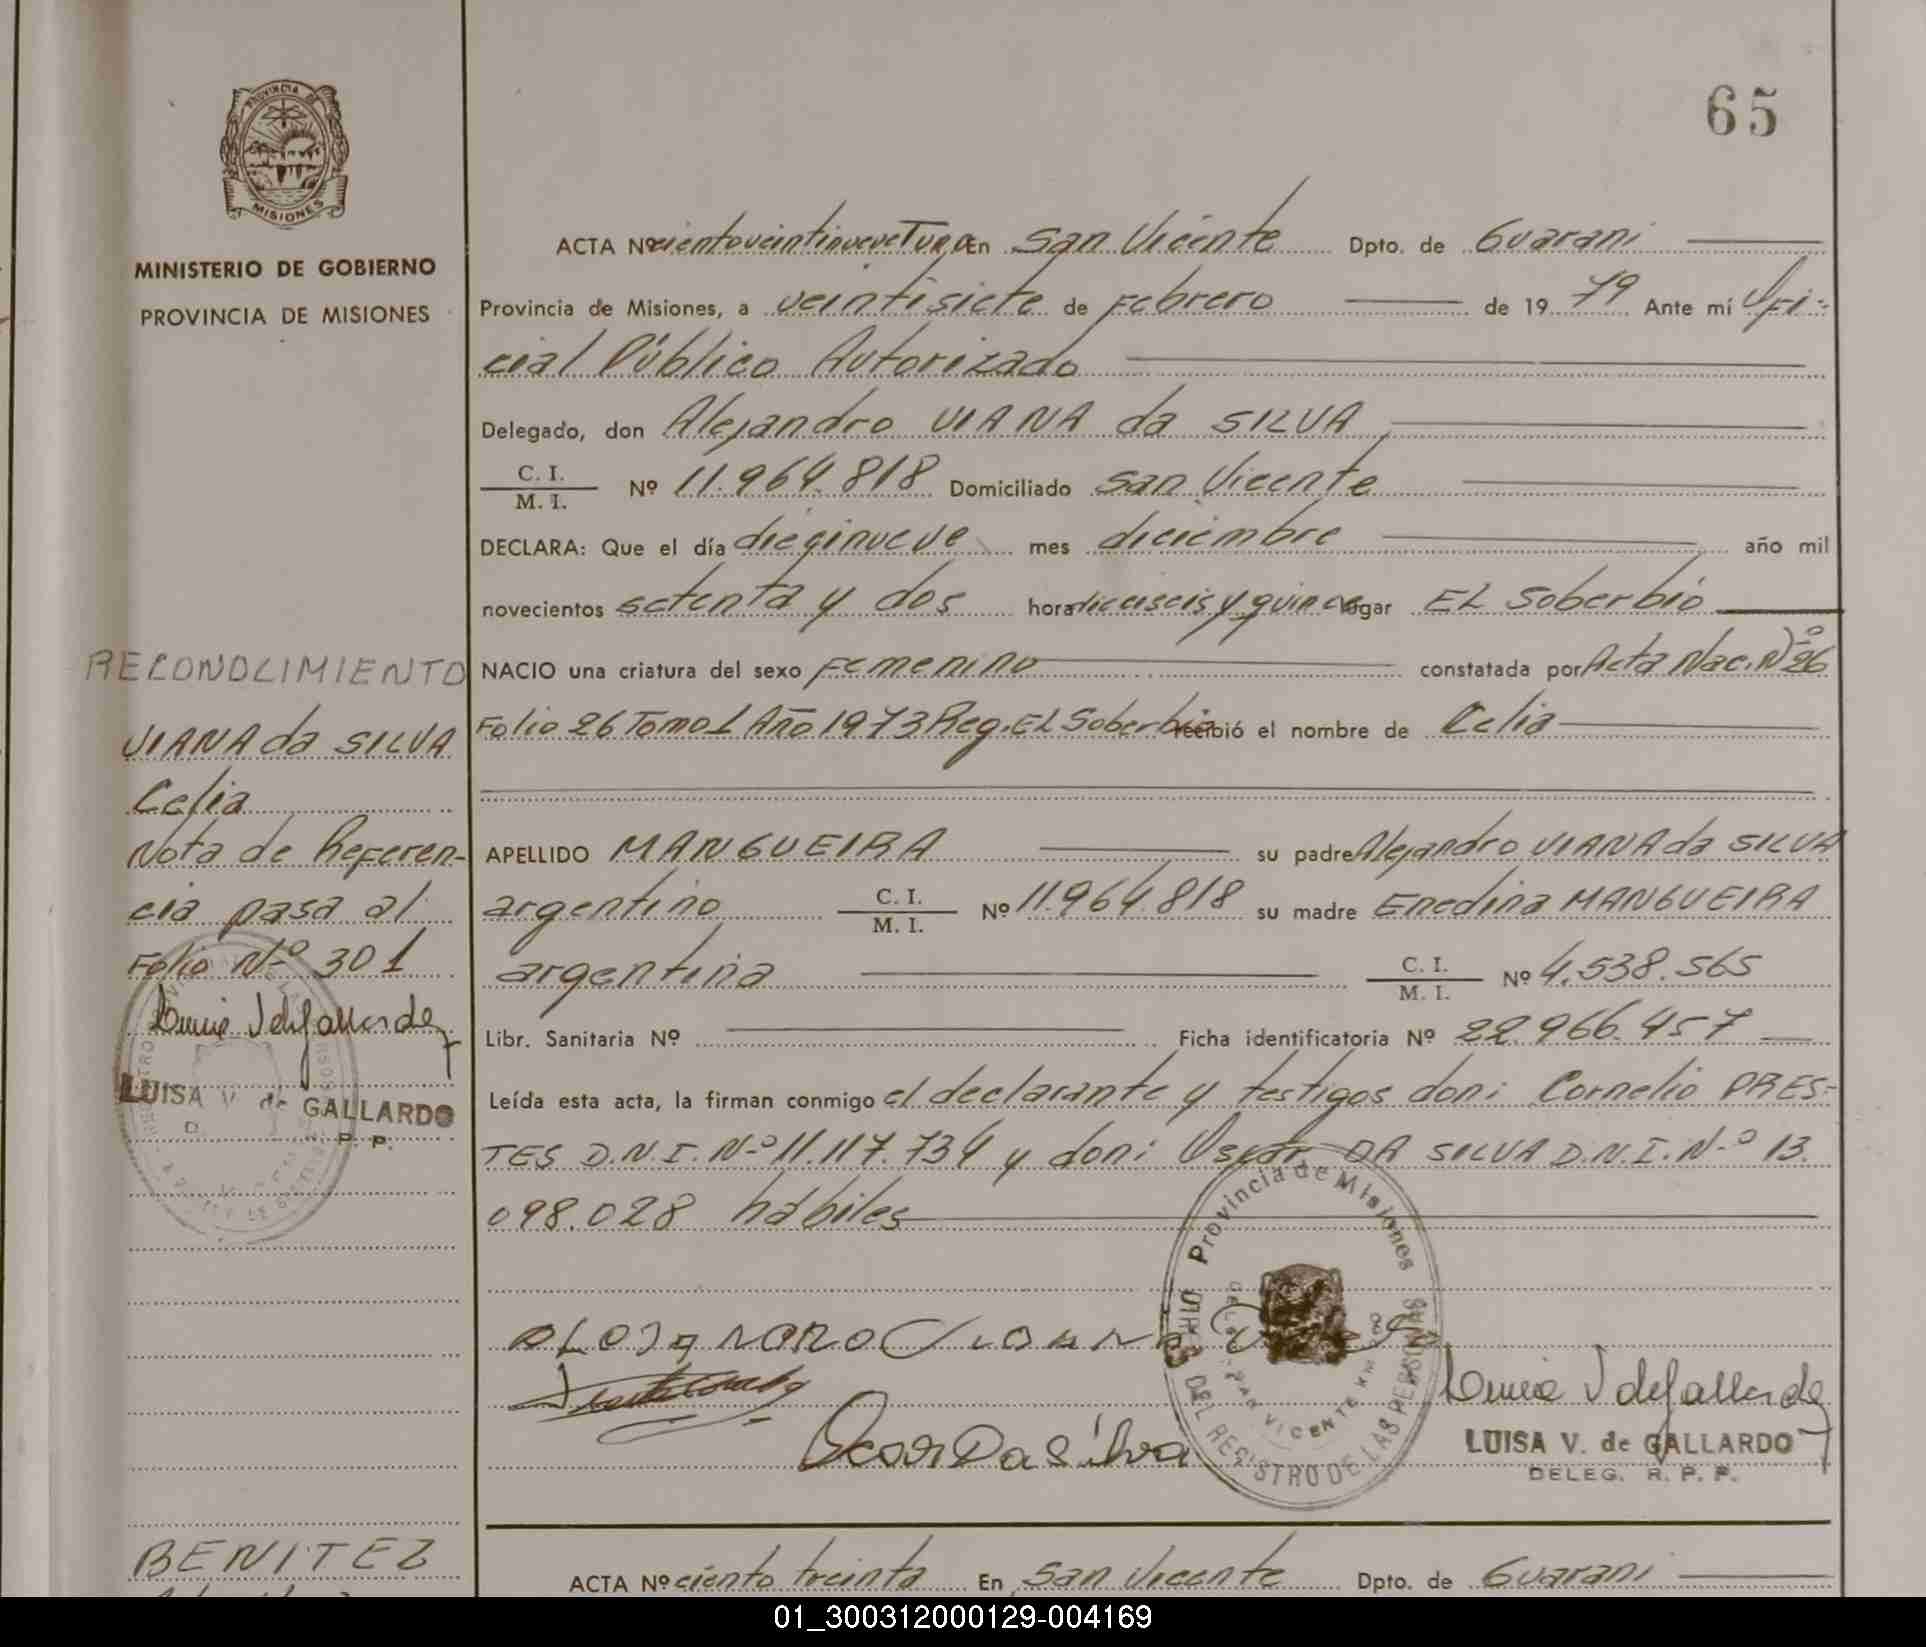 65
PROVINCIA DE
MISIONES
MINISTERIO DE GOBIERNO
PROVINCIA DE MISIONES
ACTA Nº cientoveintinueve Tuno En San Vicente Dpto. de Guarani
Provincia de Misiones, a veintisiete de Febrero de 19 79 Ante mí Ofi-
cial Público Autorizado
Delegado, don Alejandro VIANA da SILVA
C. I.
M. I.
Nº 11.964.818 Domiciliado San Vicente
DECLARA: Que el día diecinueve mes diciembre año mil
novecientos setenta y dos hora dieciseis y quince lugar EL Soberbio
NACIO una criatura del sexo Femenino constatada por Acta Nac. Nº 26
Folio 26 Tomo 1 Año 1973 Reg. EL Soberbio recibió el nombre de Celia
APELLIDO MANGUEIRA su padre Alejandro VIANA da SILVA
argentino C. I. M. I. Nº 11.964.818 su madre Enedina MANGUEIRA
argentina C. I. M. I. Nº 4.538.565
Libr. Sanitaria Nº Ficha identificatoria Nº 22.966.457
Leída esta acta, la firman conmigo el declarante y testigos don: Cornelio PRES-
TES D.N.I. Nº 11.117.734 y don: Oscar DA SILVA D.N.I. Nº 13.
098.028 hábiles
RECONOCIMIENTO
VIANA da SILVA
Celia
Nota de Referen-
cia pasa al
Folio Nº 301
LUISA V. de GALLARDO
P. P.
Oscar Da Silva
Provincia de Misiones
DEL REGISTRO DE LAS PERSONAS
SAN VICENTE
LUISA V. de GALLARDO
DELEG. R. P. P.
BENITEZ
ACTA Nº ciento treinta En San Vicente Dpto. de Guarani
01_300312000129-004169